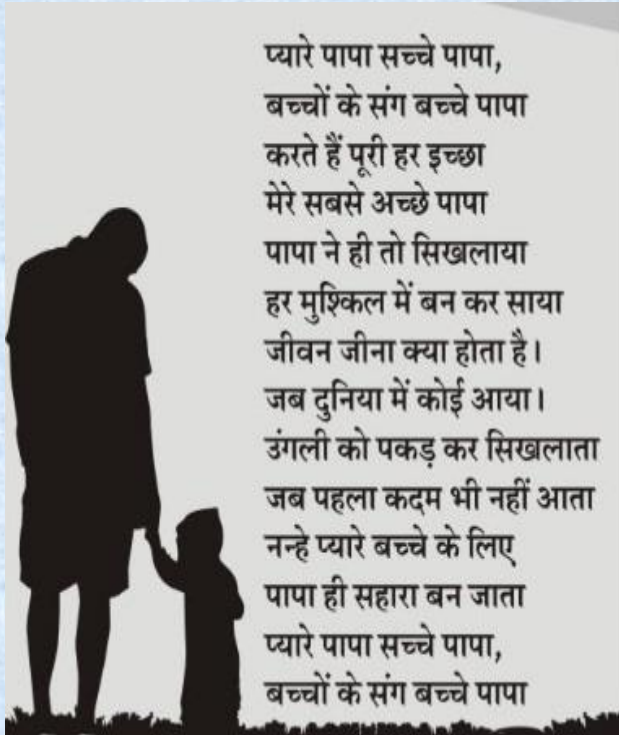 प्यारे पापा सच्चे पापा,
बच्चों के संग बच्चे पापा
करते हैं पूरी हर इच्छा
मेरे सबसे अच्छे पापा
पापा ने ही तो सिखलाया
हर मुश्किल में बन कर साया
जीवन जीना क्या होता है।
जब दुनिया में कोई आया।
उंगली को पकड़ कर सिखलाता
जब पहला कदम भी नहीं आता
नन्हे प्यारे बच्चे के लिए
पापा ही सहारा बन जाता
प्यारे पापा सच्चे पापा,
बच्चों के संग बच्चे पापा